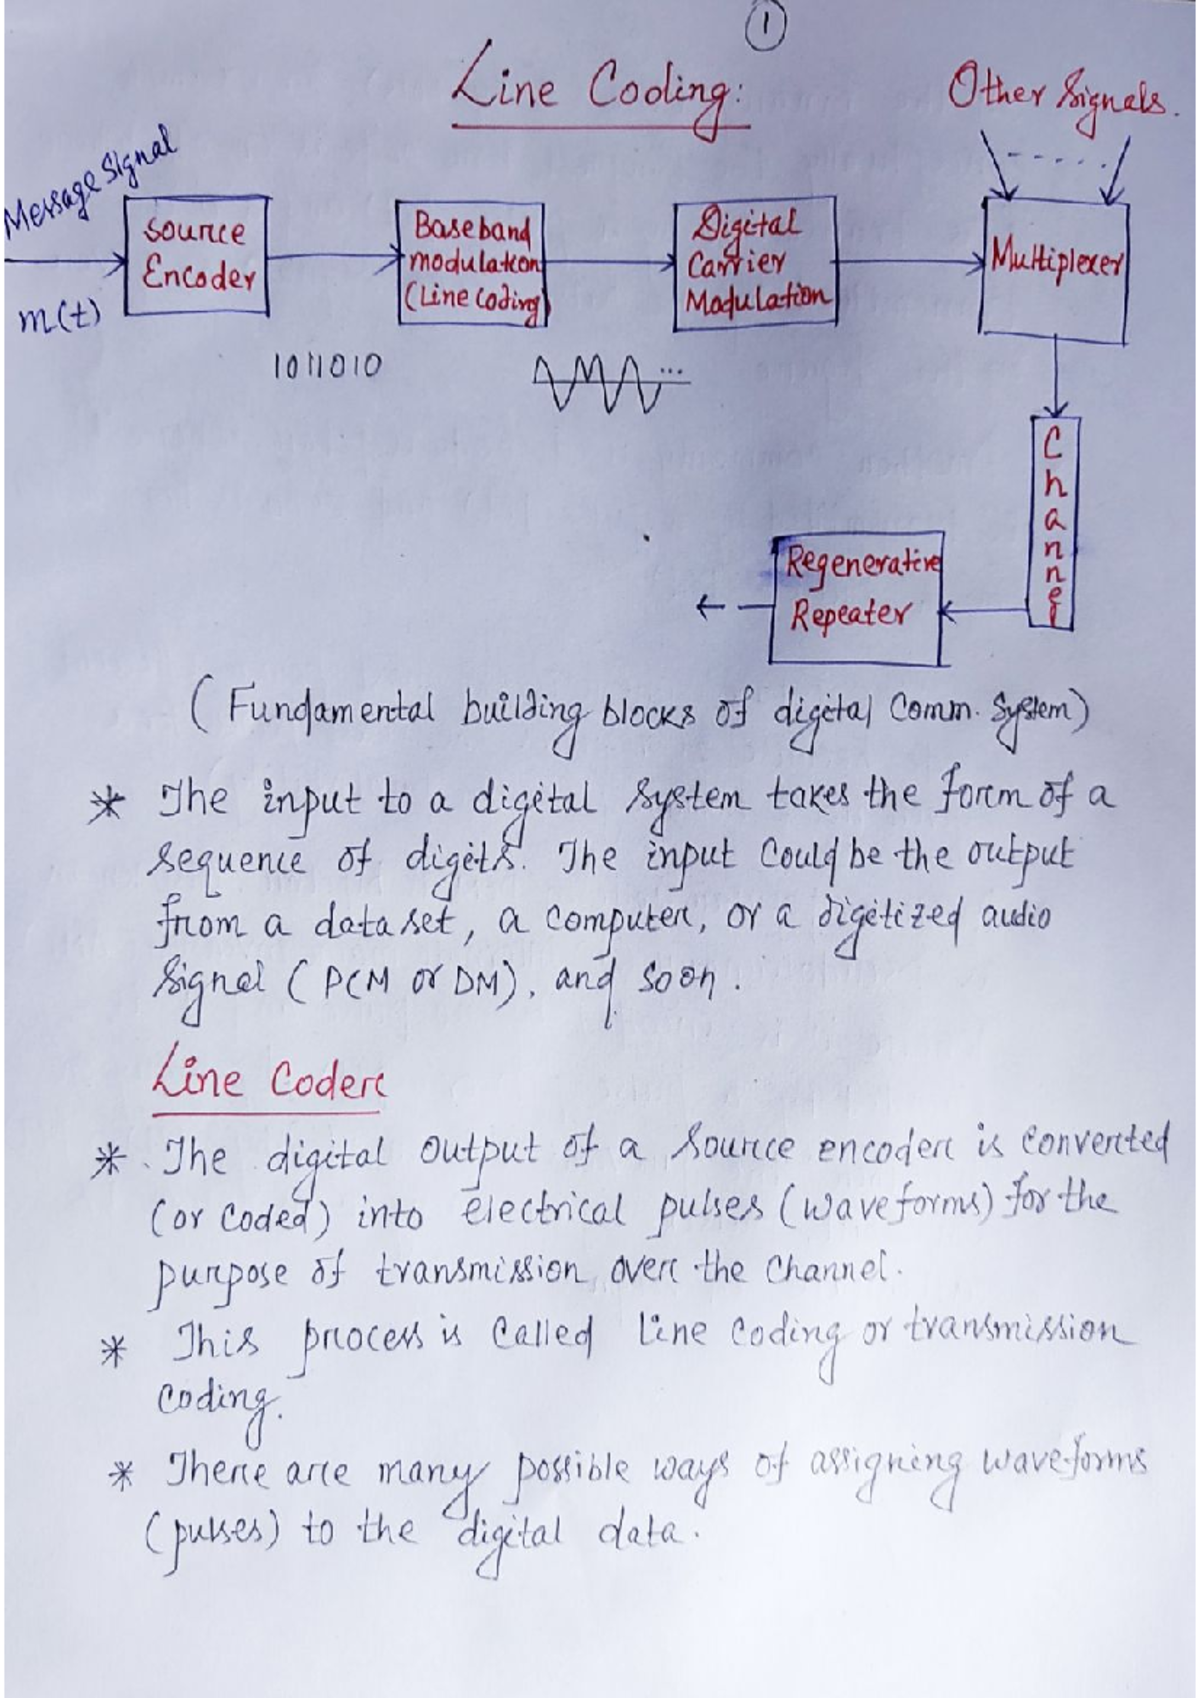 1
Line Coding:
Other Signals.
Message Signal
m(t)
Source
Encoder
1011010
Baseband
modulation
(Line coding)
...
Digital
Carrier
Modulation
Multiplexer
Channel
Regenerative
Repeater
(Fundamental building blocks of digital Comm. System)
* The input to a digital system takes the form of a
sequence of digits. The input could be the output
from a data set, a computer, or a digitized audio
signal (PCM or DM), and soon.
Line Coder
* The digital output of a source encoder is converted
(or coded) into electrical pulses (waveforms) for the
purpose of transmission over the channel.
* This process is called line coding or transmission
coding.
* There are many possible ways of assigning waveforms
(pulses) to the digital data.